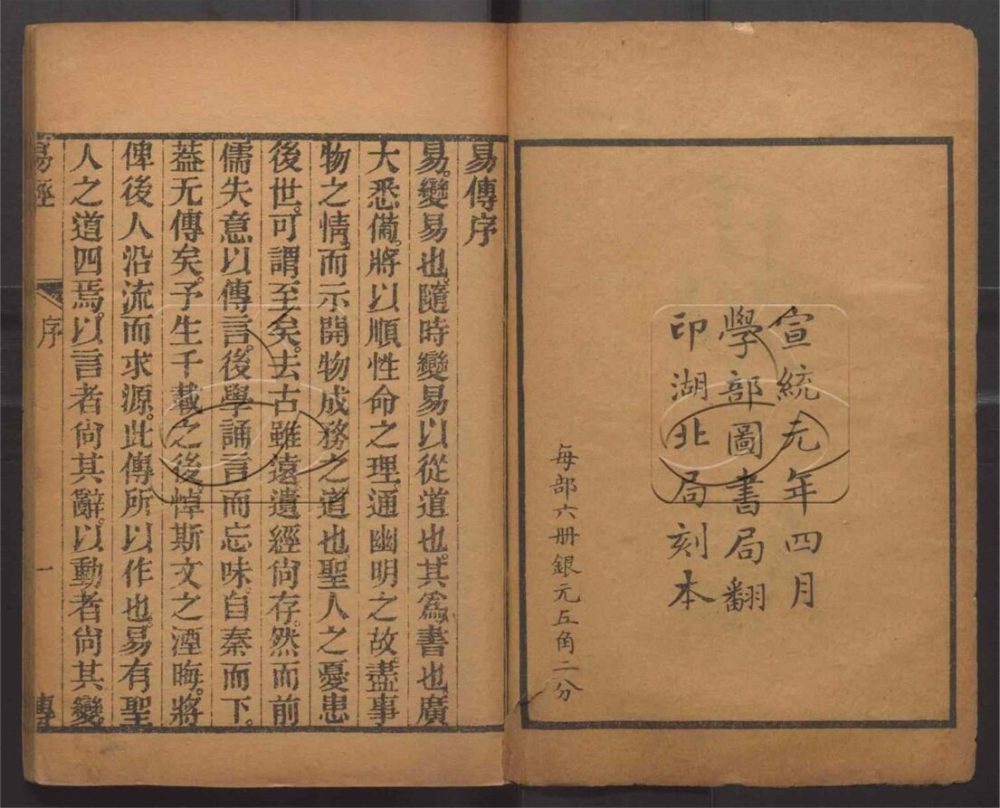 宣統元年四月
學部圖書局翻
印湖北局刻本
每部六册銀元五角二分
易傳序
易。變易也。隨時變易以從道也。其爲書也廣
大悉備。將以順性命之理。通幽明之故。盡事
物之情。而示開物成務之道也。聖人之憂患
後世。可謂至矣。去古雖遠。遺經尙存。然而前
儒失意以傳言。後學誦言而忘味。自秦而下。
蓋无傳矣。予生千載之後。悼斯文之湮晦。將
俾後人沿流而求源。此傳所以作也。易有聖
人之道四焉。以言者尙其辭。以動者尙其變。
易經
序
一
傳